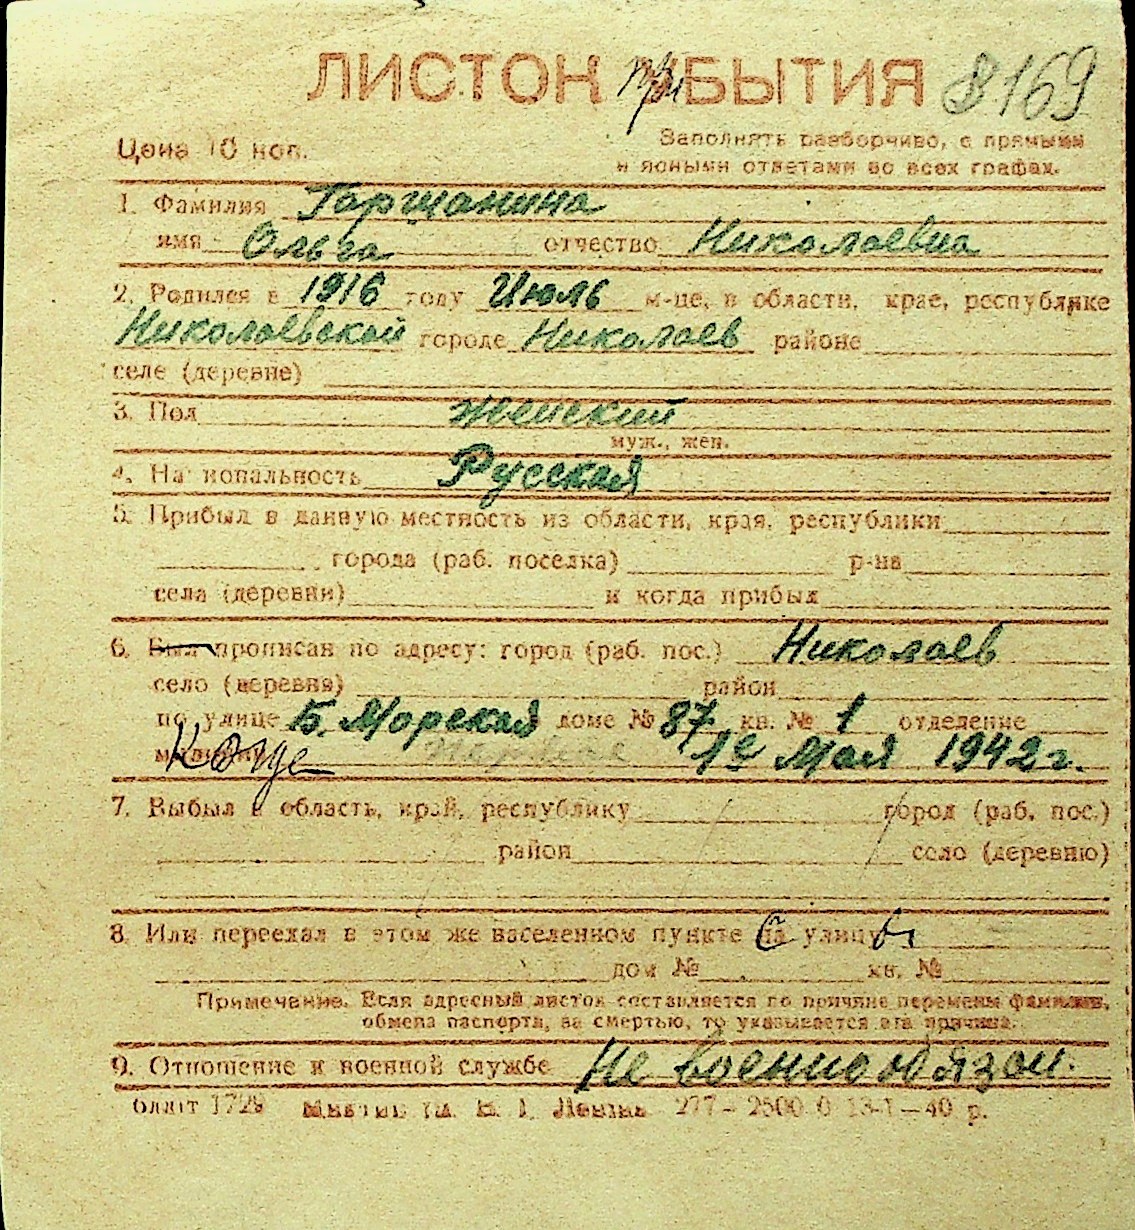 ЛИСТОН при УБЫТИЯ 8169
Цена 10 коп.
Заполнять разборчиво, с прямыми
и ясными ответами во всех графах.
1. Фамилия Горщанина
имя Ольга отчество Николаевна
2. Родился в 1916 году Июль м-це, в области, крае, республике
Николаевской городе Николаев районе
селе (деревне)
3. Пол Женский
муж., жен.
4. Национальность Русская
5. Прибыл в данную местность из области, края, республики
города (раб. поселка) р-на
села (деревни) и когда прибыл
6. Был прописан по адресу: город (раб. пос.) Николаев
село (деревня) район
по улице Б. Морская доме № 87 кв. № 1 отделение
милиции Когда 19 Мая 1942 г.
7. Выбыл в область, край, республику город (раб. пос.)
район село (деревню)
8. Или переехал в этом же населенном пункте с улицы
дом № кв. №
Примечание. Если адресный листок составляется по причине перемены фамилии,
обмена паспорта, за смертью, то указывается эта причина.
9. Отношение к военной службе Не военнообязан.
1729 277 – 2500 0 13-I – 40 р.